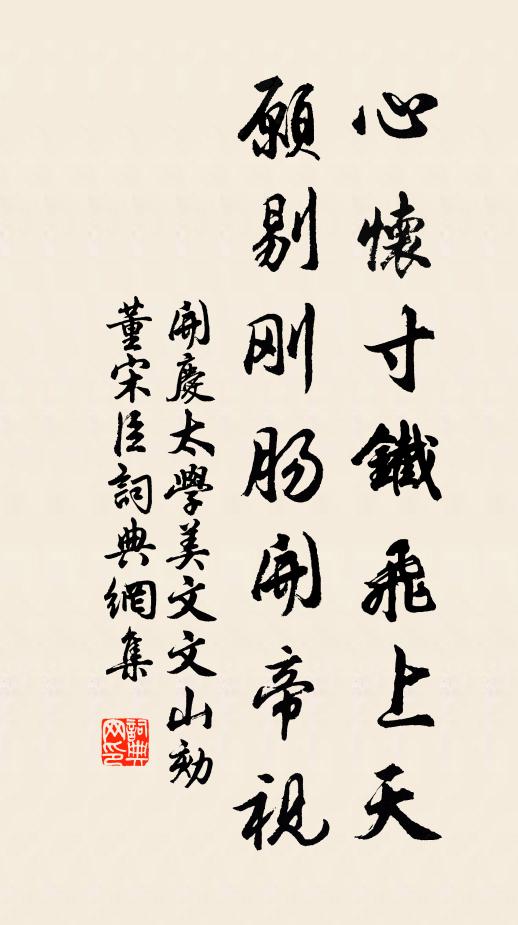 心懷寸鐵飛上天
願剔刚肠開帝視
開慶太學美文文山劾
董宋臣詞典網集
詞典
网印